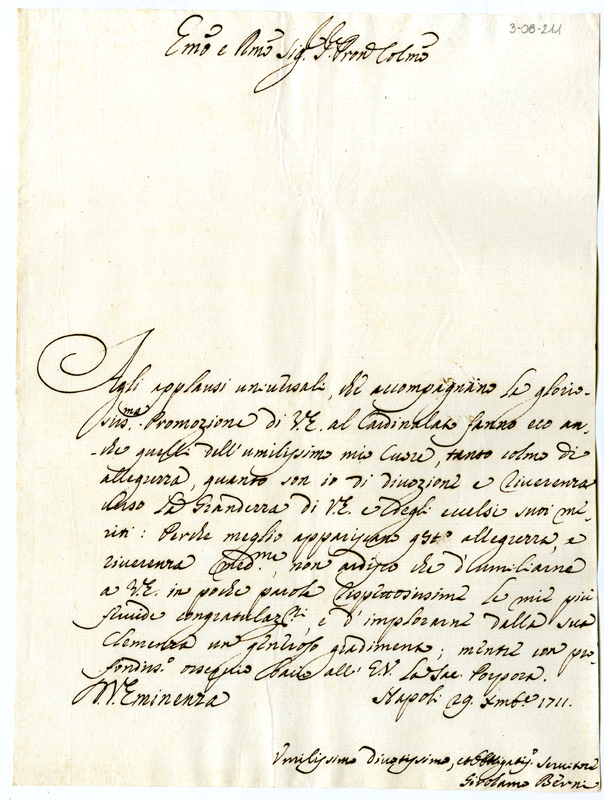 3-08-211
Emo e Rmo Sig.r P.ron Colmo
Agli applausi universali, che accompagnano la glorio-
siss.ma Promozione di V.E. al Cardinalato fanno eco an-
-che quelli dell'umilissimo mio Cuore, tanto colmo di
allegrezza, quanto son io di divozione e riverenza
verso la Grandezza di V.E. e degli eccelsi suoi me-
riti: Perche meglio appariscan q.sta allegrezza, e
riverenza med.me, non ardisco che d'umiliarne
a V.E. in poche parole rispettosissime le mie più
fervide congratulaz.ni, e d'implorarne dalla sua
Clemenza un generoso gradimento; mentre con pro-
fondiss.o ossequio bacio all'E.V. La Sac. Porpora.
D.V. Eminenza
Napoli 29. Xmb.e 1711.
Umilissimo divotissimo, et obbligatis.o servitore
Girolamo Berni